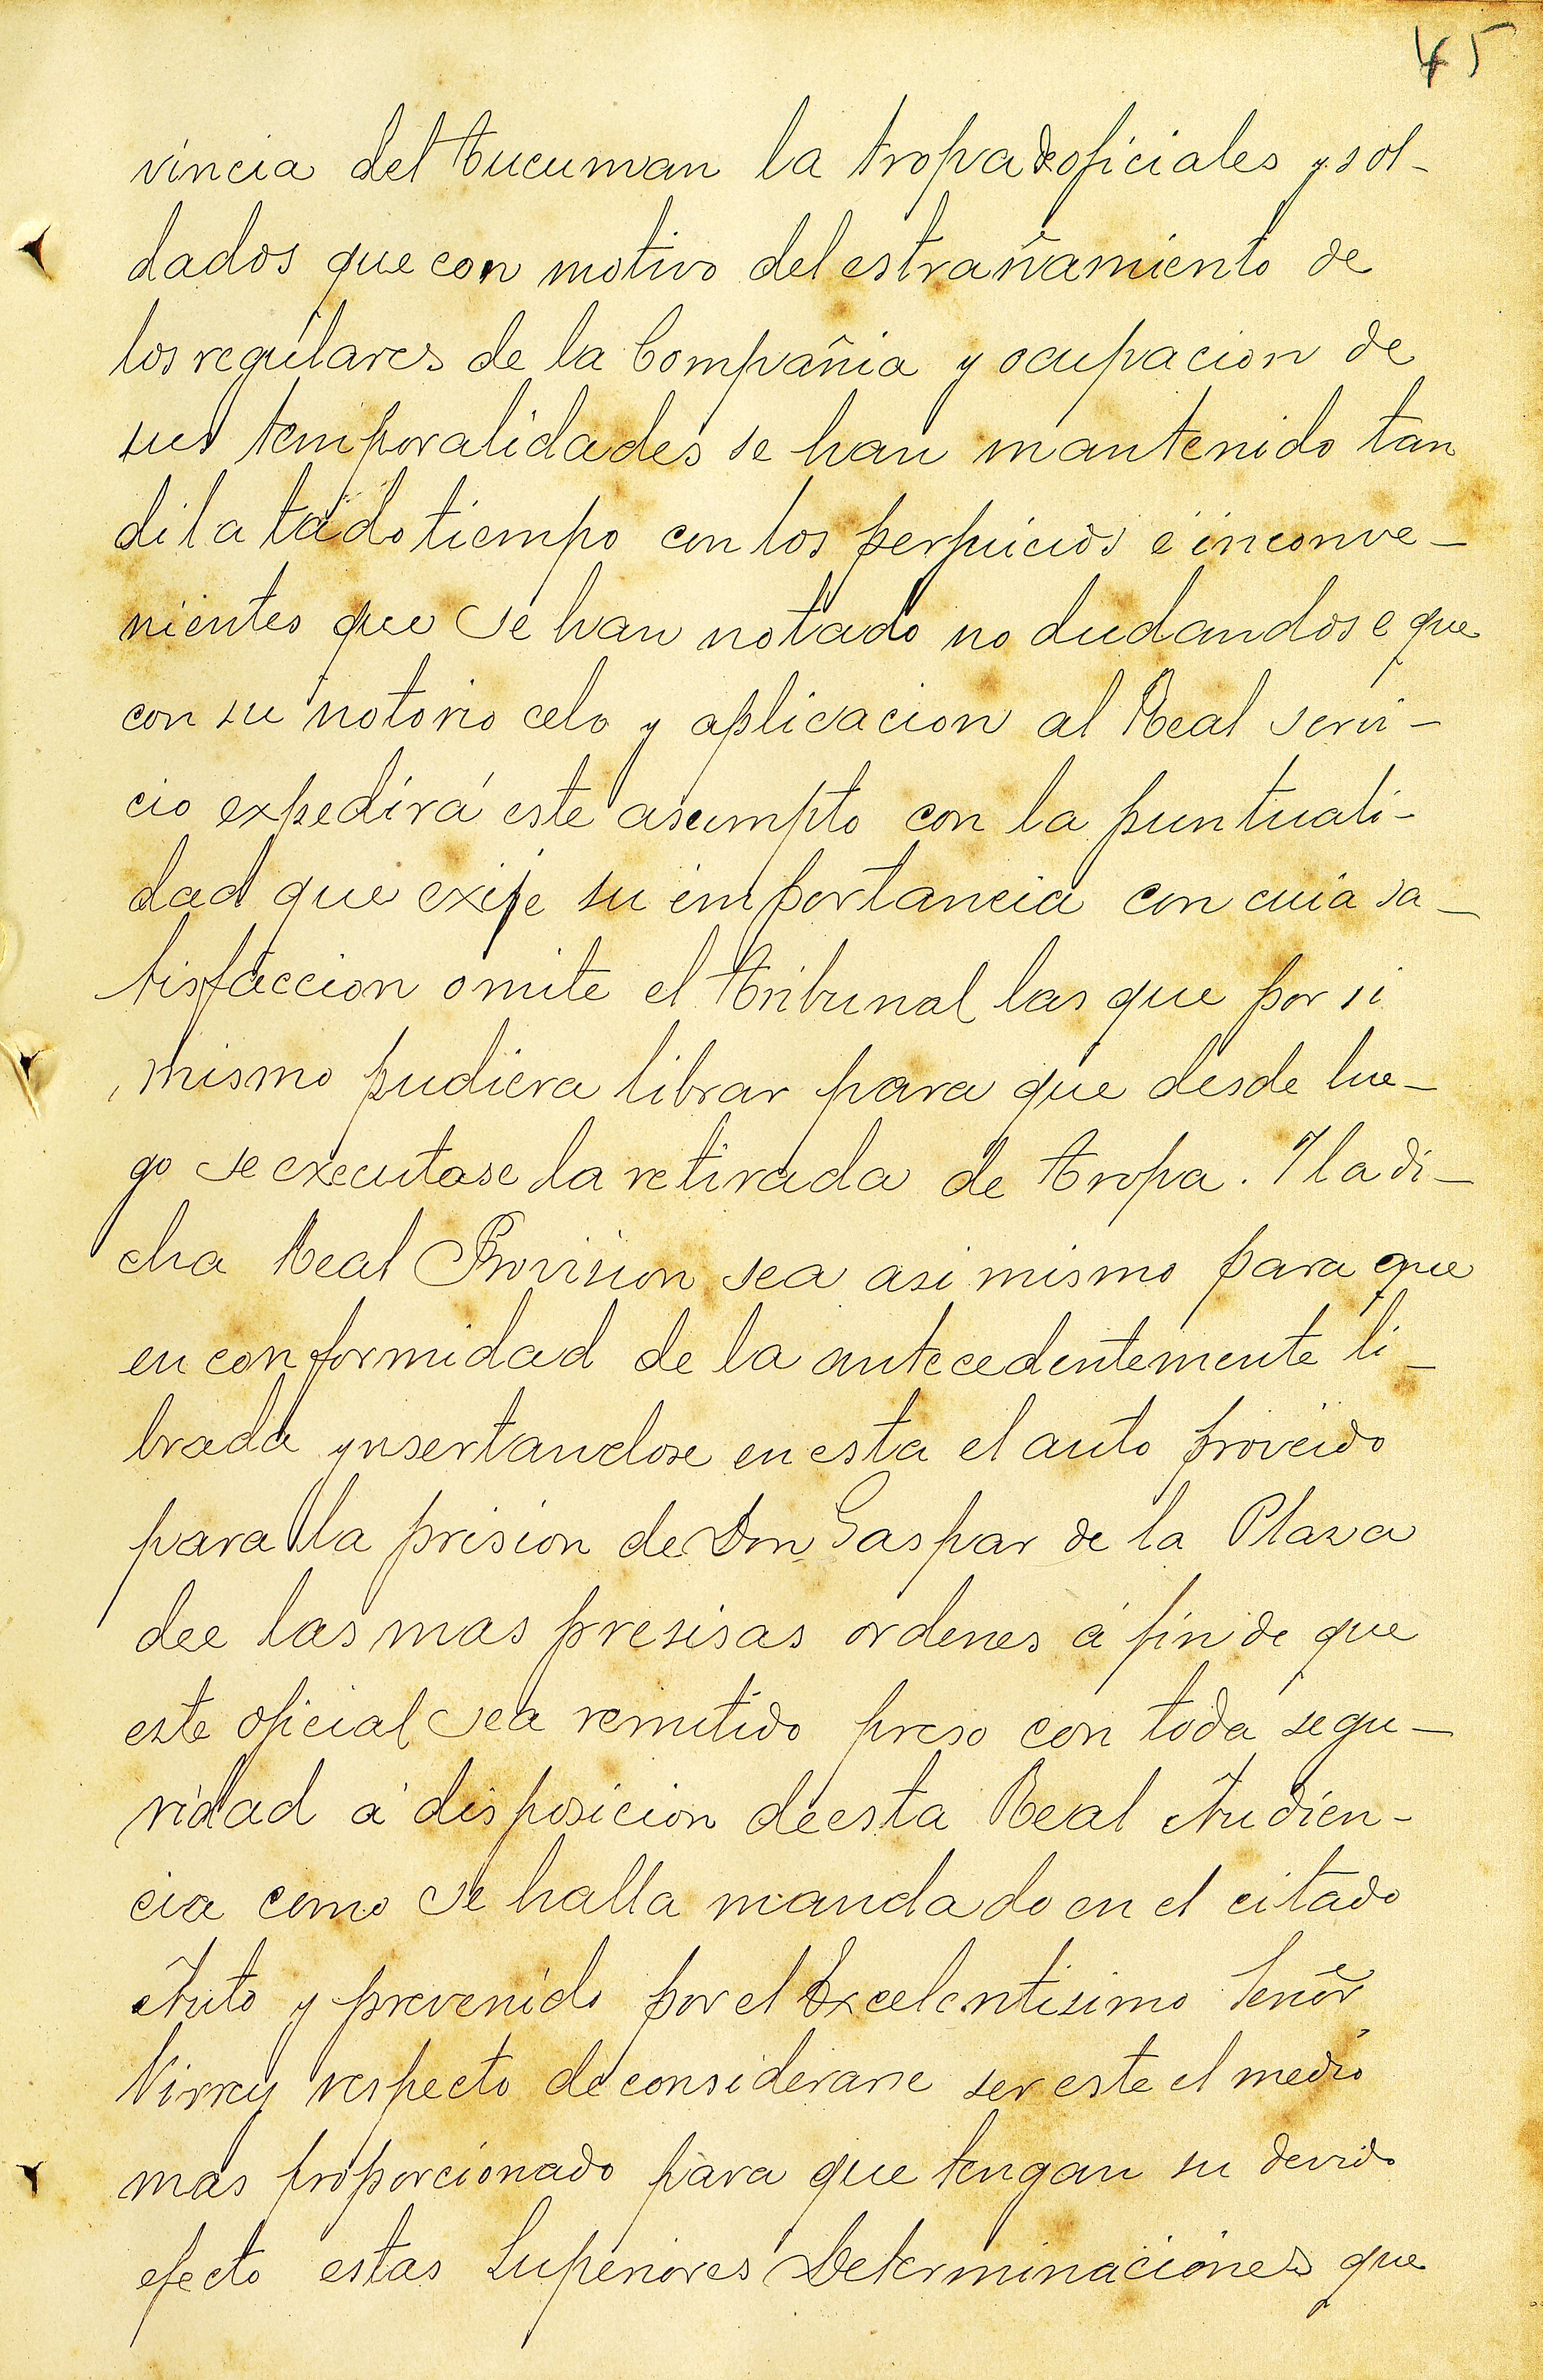 45
vincia del Tucuman la tropa de oficiales y sol-
dados que con motivo del estrañamiento de
los regulares de la Compañia y ocupacion de
sus temporalidades se han mantenido tan
dilatado tiempo con los perjuicios é inconve-
nientes que se han notado no dudandose que
con su notorio celo y aplicacion al Real servi-
cio expedirá este asumpto con la puntuali-
dad que exije su importancia con cuia sa-
tisfaccion omite el Tribunal las que por si
mismo pudiera librar para que desde lue-
go se executase la retirada de tropa. Y la di-
cha Real Provision sea asi mismo para que
en conformidad de la antecedentemente li-
brada ynsertandose en esta el auto proveido
para la prision de Don Gaspar de la Plaza
dee las mas presisas ordenes á fin de que
este oficial sea remitido preso con toda segu-
ridad á disposicion de esta Real Audien-
cia como se halla mandado en el citado
Auto y prevenido por el Excelentisimo Señor
Virrey respecto de considerarse ser este el medio
mas proporcionado para que tengan su devido
efecto estas Superiores Determinaciones que